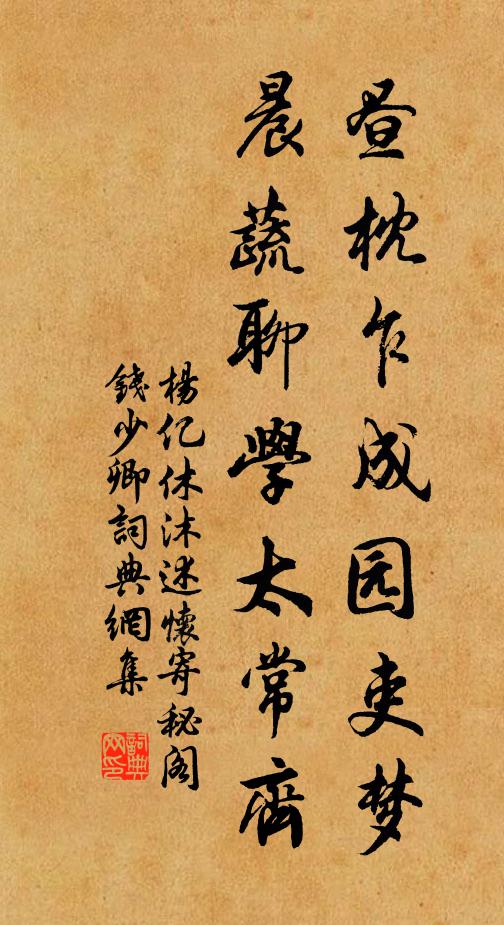 昼枕乍成园吏梦
晨蔬聊學太常齊
楊亿休沐述懷寄秘阁
錢少卿詞典網集
詞典网印